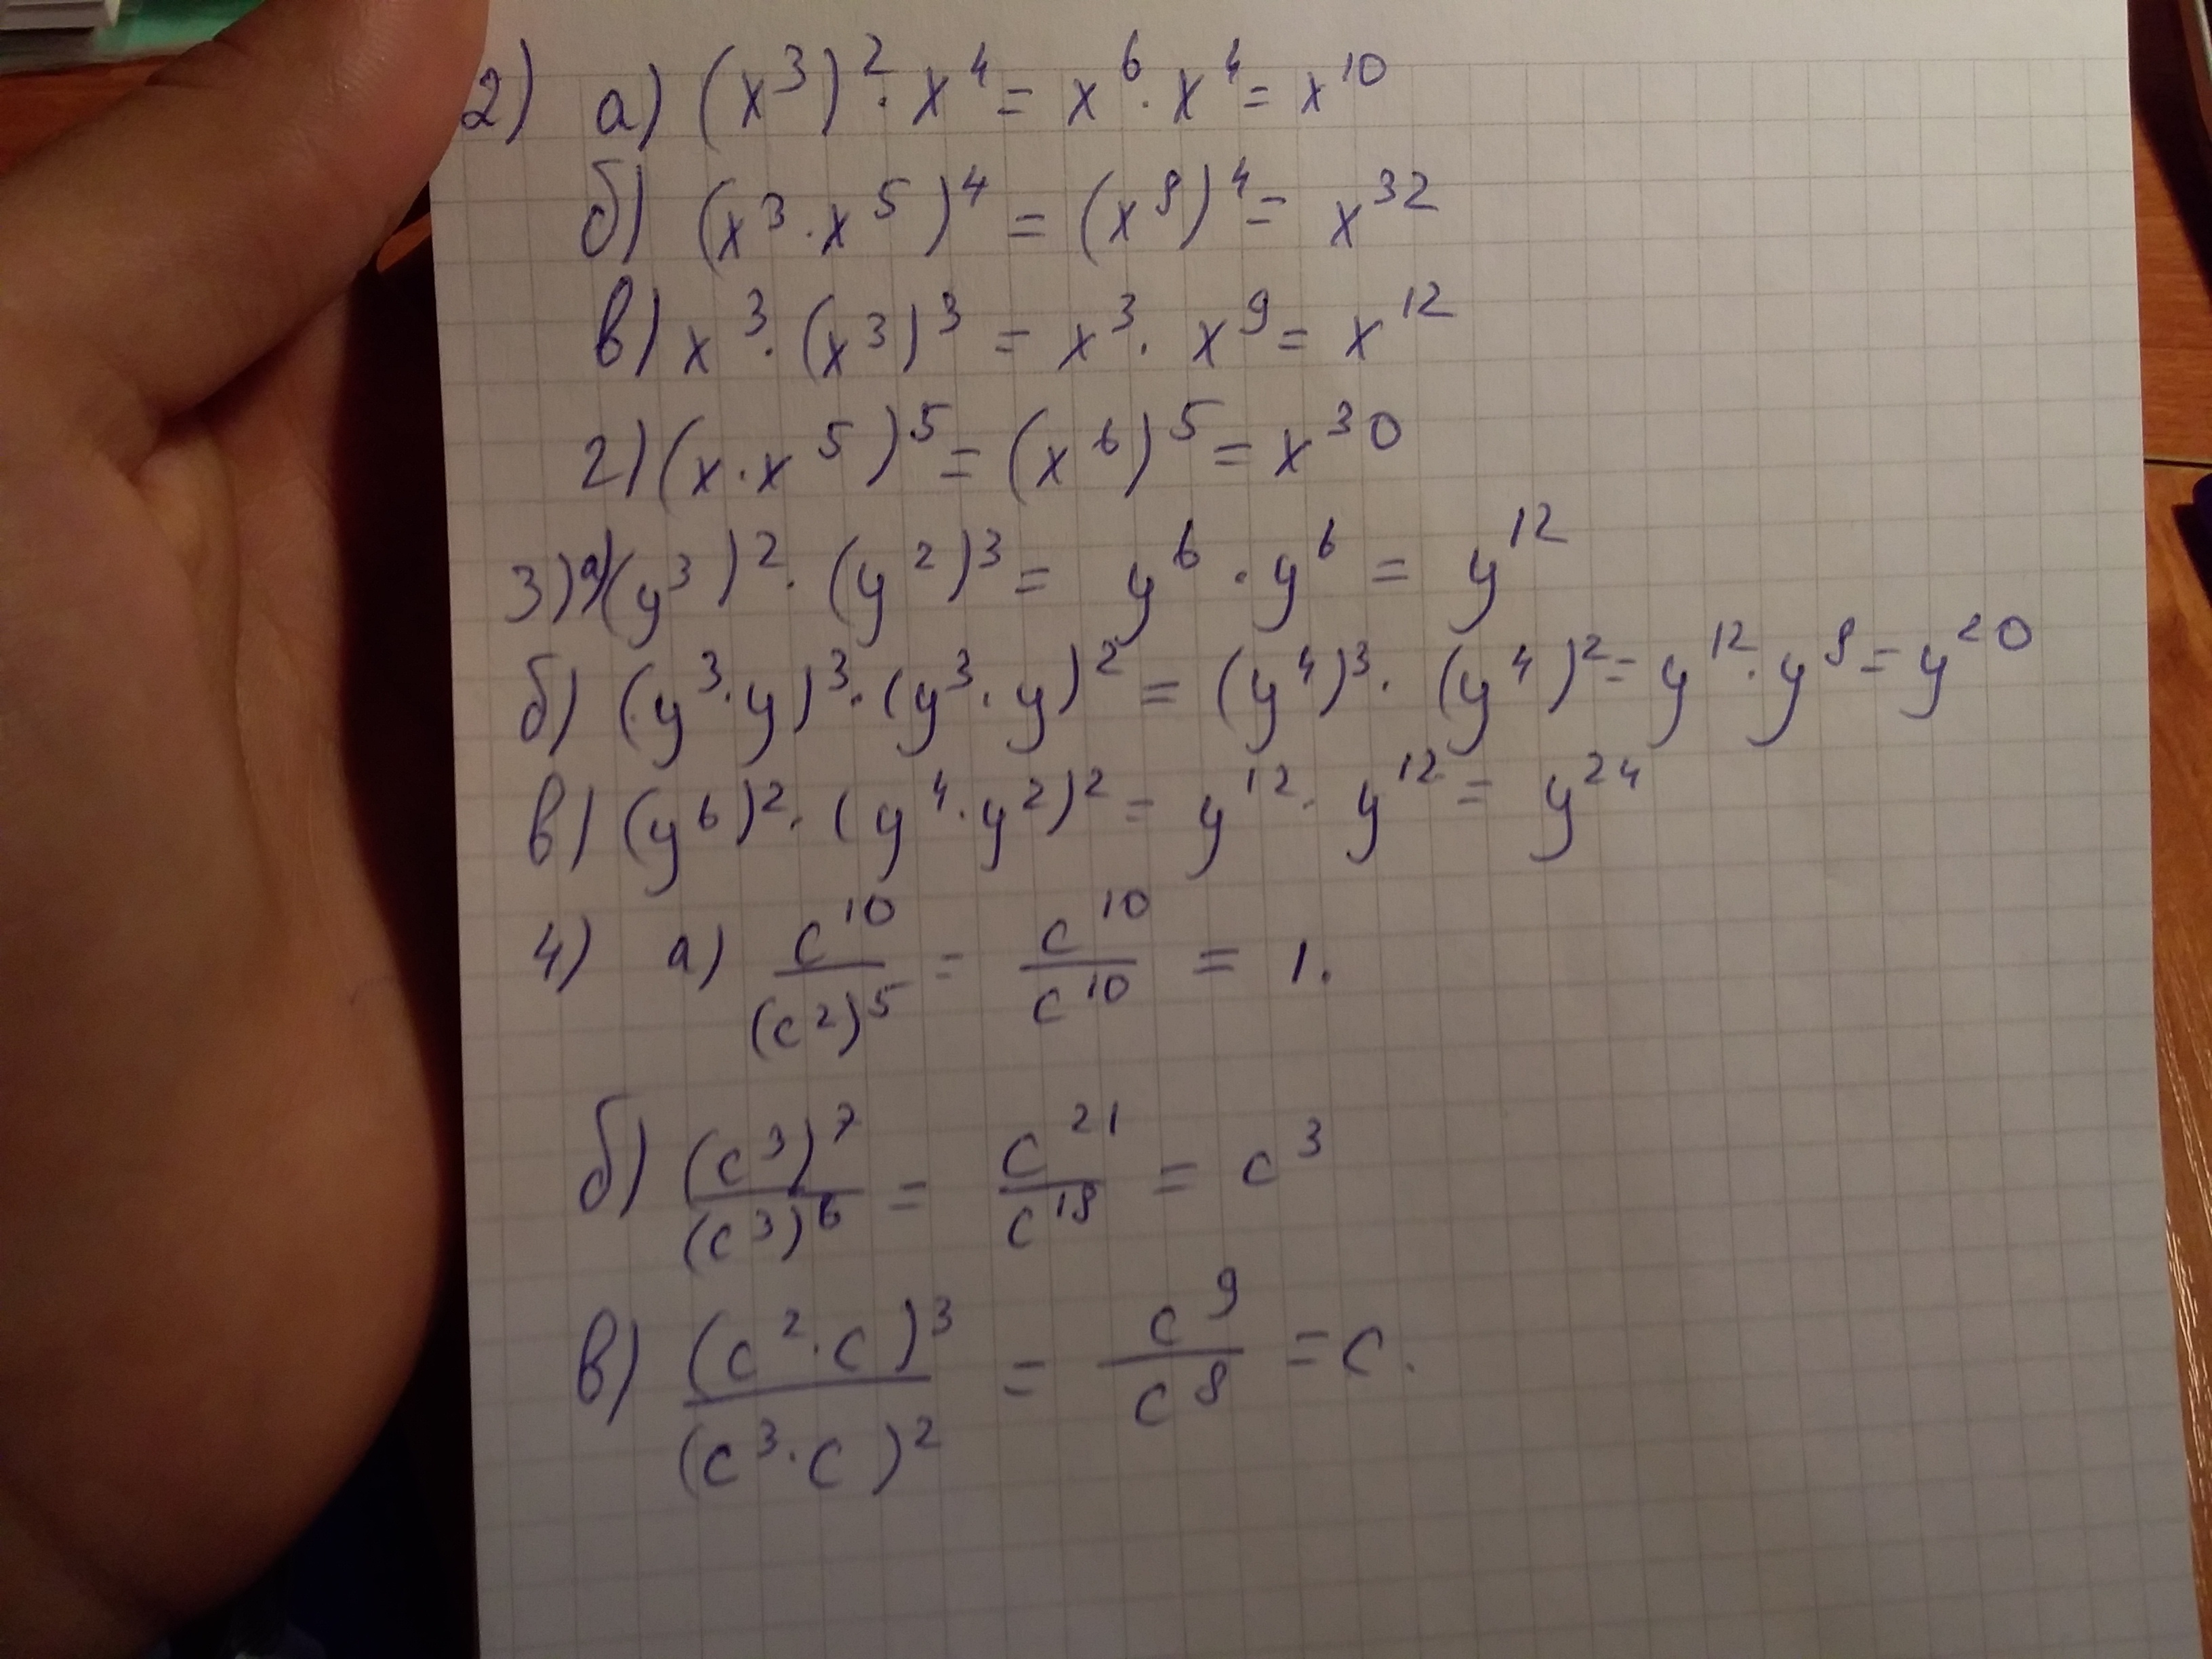 2) а) (x³)² · x⁴ = x⁶ · x⁴ = x¹⁰
б) (x³ · x⁵)⁴ = (x⁸)⁴ = x³²
в) x³ · (x³)³ = x³ · x⁹ = x¹²
г) (x · x⁵)⁵ = (x⁶)⁵ = x³⁰
3) а) (y³)² · (y²)³ = y⁶ · y⁶ = y¹²
б) (y³ · y)³ · (y³ · y)² = (y⁴)³ · (y⁴)² = y¹² · y⁸ = y²⁰
в) (y⁶)² · (y⁴ · y²)² = y¹² · y¹² = y²⁴
4) а) c¹⁰/(c²)⁵ = c¹⁰/c¹⁰ = 1.
б) (c³)⁷/(c³)⁶ = c²¹/c¹⁸ = c³
в) (c² · c)³/(c³ · c)² = c⁹/c⁸ = c.